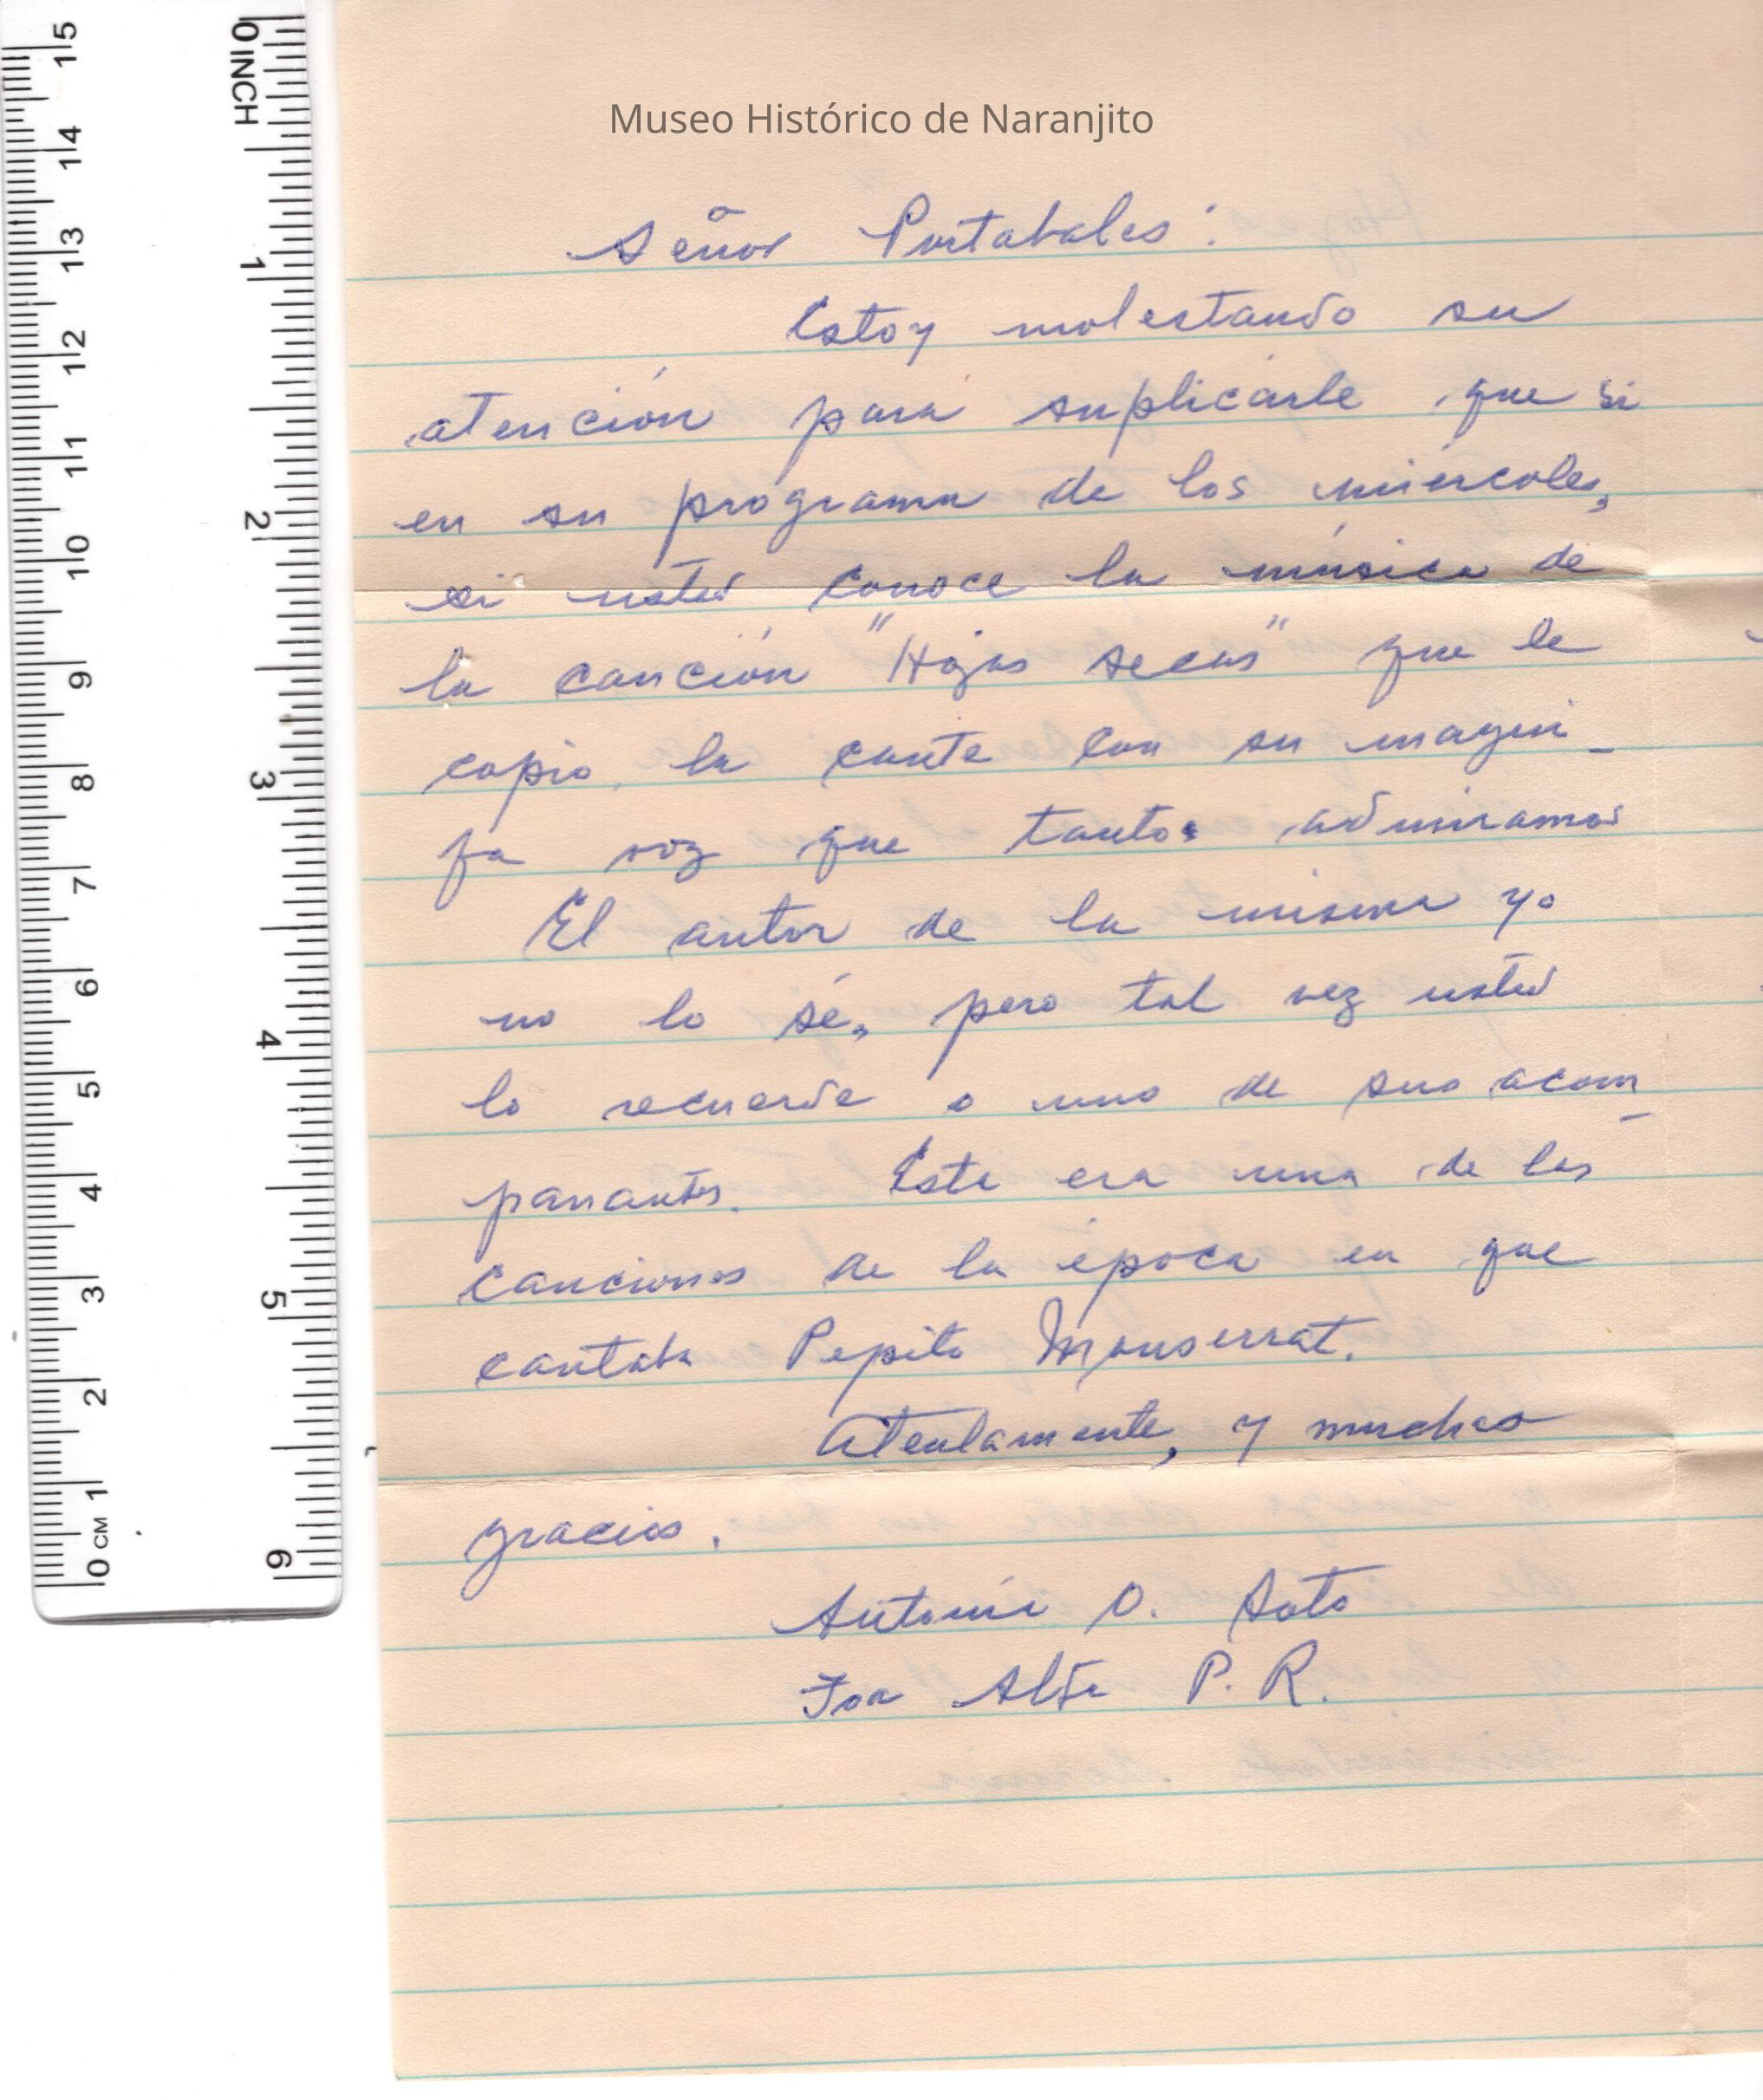 Museo Histórico de Naranjito
Señor Portabales:
Estoy molestando su
atención para suplicarle que si
en su programa de los miércoles,
si usted conoce la música de
la canción "Hojas secas" que le
copio, la cante con su magni-
fa voz que tantos admiramos
El autor de la misma yo
no lo sé, pero tal vez usted
lo recuerde o uno de sus acom-
panantes. Esta era una de las
canciones de la época en que
cantaba Pepito Monserrat.
Atentamente, y muchas
gracias.
Antonio O. Soto
Toa Alta P. R.
0 INCH 1 2 3 4 5 6
0 CM 1 2 3 4 5 6 7 8 9 10 11 12 13 14 15